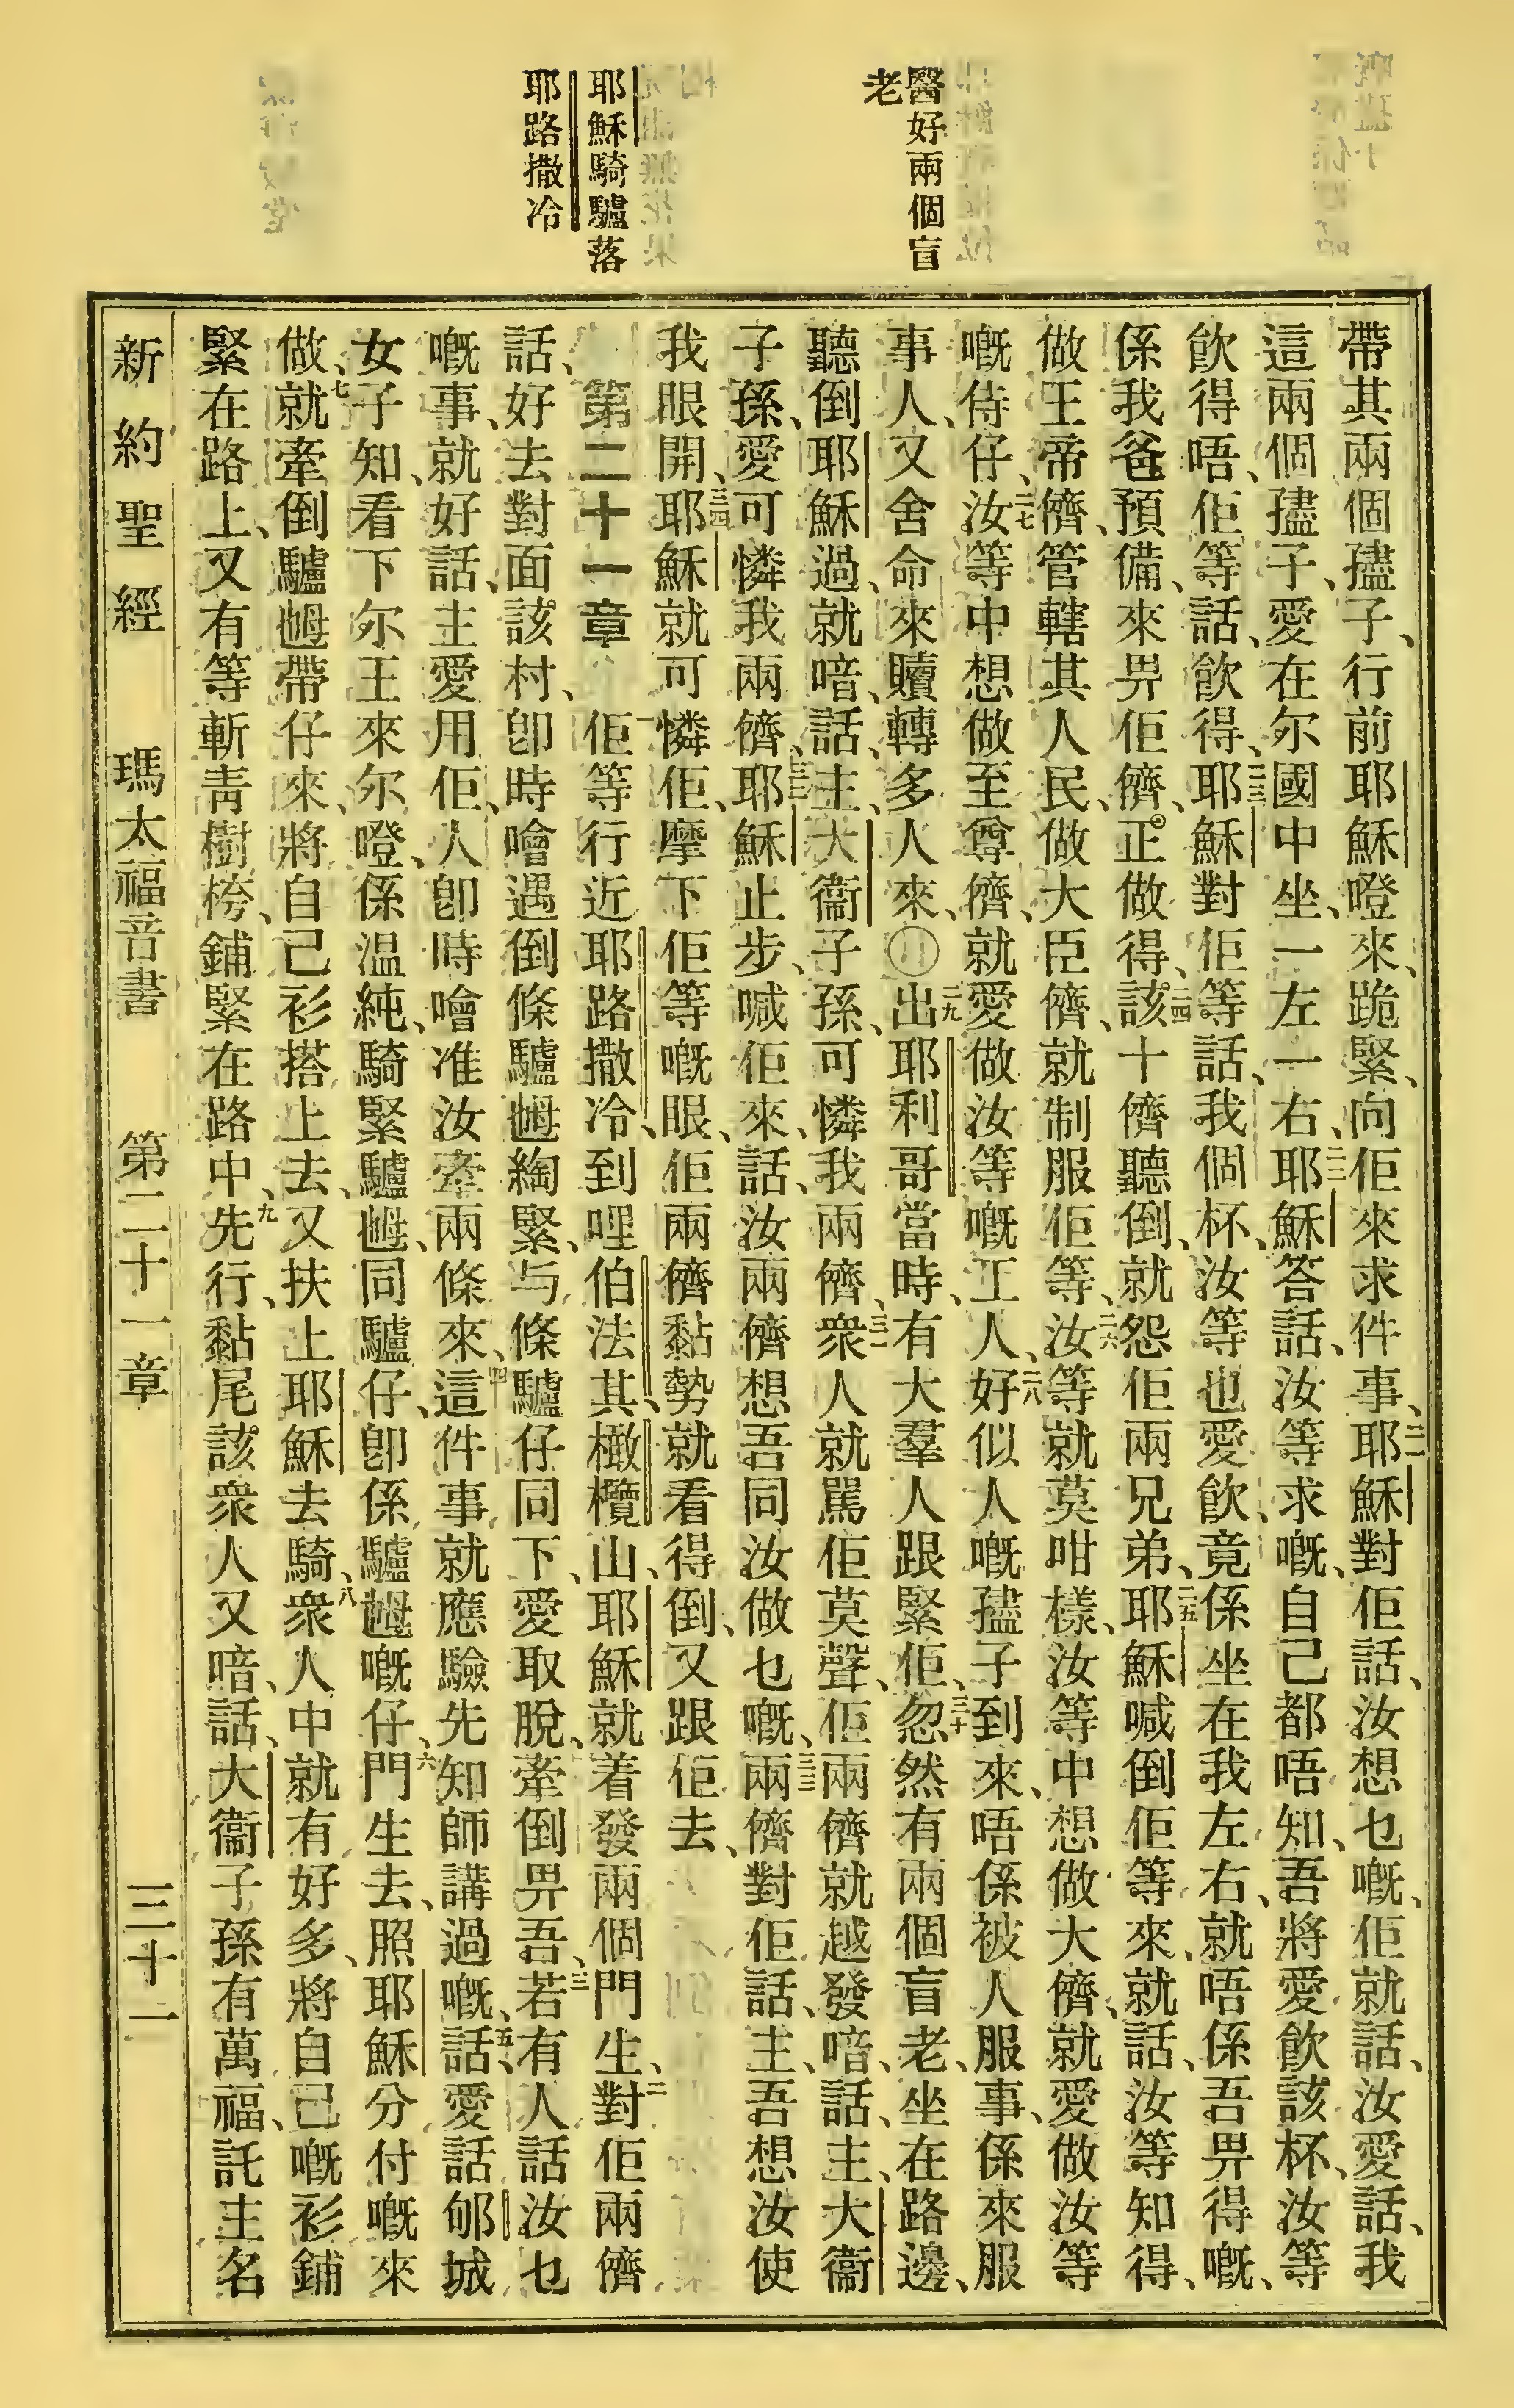 醫好兩個盲
老
耶穌騎驢落
耶路撒冷
帶其兩個孻子、行前耶穌嶝來、跪緊、向佢來求件事、二一耶穌對佢話、汝想乜嘅、佢就話、汝愛話、我
這兩個孻子、愛在尔國中坐、一左一右、二二耶穌答話、汝等求嘅、自己都唔知、吾將愛飲該杯、汝等
飲得唔、佢等話、飲得、二三耶穌對佢等話、我個杯、汝等也愛飲、竟係坐在我左右、就唔係吾畀得嘅、
係我爸預備、來畀佢儕、正做得、二四該十儕聽倒、就怨佢兩兄弟、二五耶穌喊倒佢等來、就話、汝等知得、
做王帝儕、管轄其人民、做大臣儕、就制服佢等、二六汝等就莫咁樣、汝等中想做大儕、就愛做汝等
嘅侍仔、二七汝等中想做至尊儕、就愛做汝等嘅工人、二八好似人嘅孻子到來、唔係被人服事、係來服
事人、又舍命來贖轉多人來、〇二九出耶利哥當時、有大羣人跟緊佢、三十忽然有兩個盲老、坐在路邊、
聽倒耶穌過、就喑、話、主、大衞子孫、可憐我兩儕、三一衆人就罵佢莫聲、佢兩儕就越發喑、話、主、大衞
子孫、愛可憐我兩儕、三二耶穌止步、喊佢來、話、汝兩儕想吾同汝做乜嘅、三三兩儕對佢話、主、吾想汝使
我眼開、三四耶穌就可憐佢、摩下佢等嘅眼、佢兩儕黏勢就看得倒、又跟佢去、
第二十一章　一佢等行近耶路撒冷、到哩伯法其、橄欖山、耶穌就着發兩個門生、二對佢兩儕
話、好去對面該村、卽時噲遇倒條驢乸綯緊、与條驢仔同下、愛取脫、牽倒畀吾、三若有人話汝乜
嘅事、就好話、主愛用佢、人卽時噲准汝牽兩條來、四這件事就應驗先知師講過嘅、話、五愛話郇城
女子知、看下尔王來尔嶝、係温純、騎緊驢乸、同驢仔、卽係驢乸嘅仔、六門生去、照耶穌分付嘅來
做、七就牽倒驢乸帶仔來、將自己衫搭上去、又扶上耶穌去騎、八衆人中就有好多、將自己嘅衫鋪
緊在路上、又有等斬靑樹桍、鋪緊在路中、九先行、黏尾該衆人又喑、話、大衞子孫有萬福、託主名
新約聖經　瑪太福音書　第二十一章　三十一